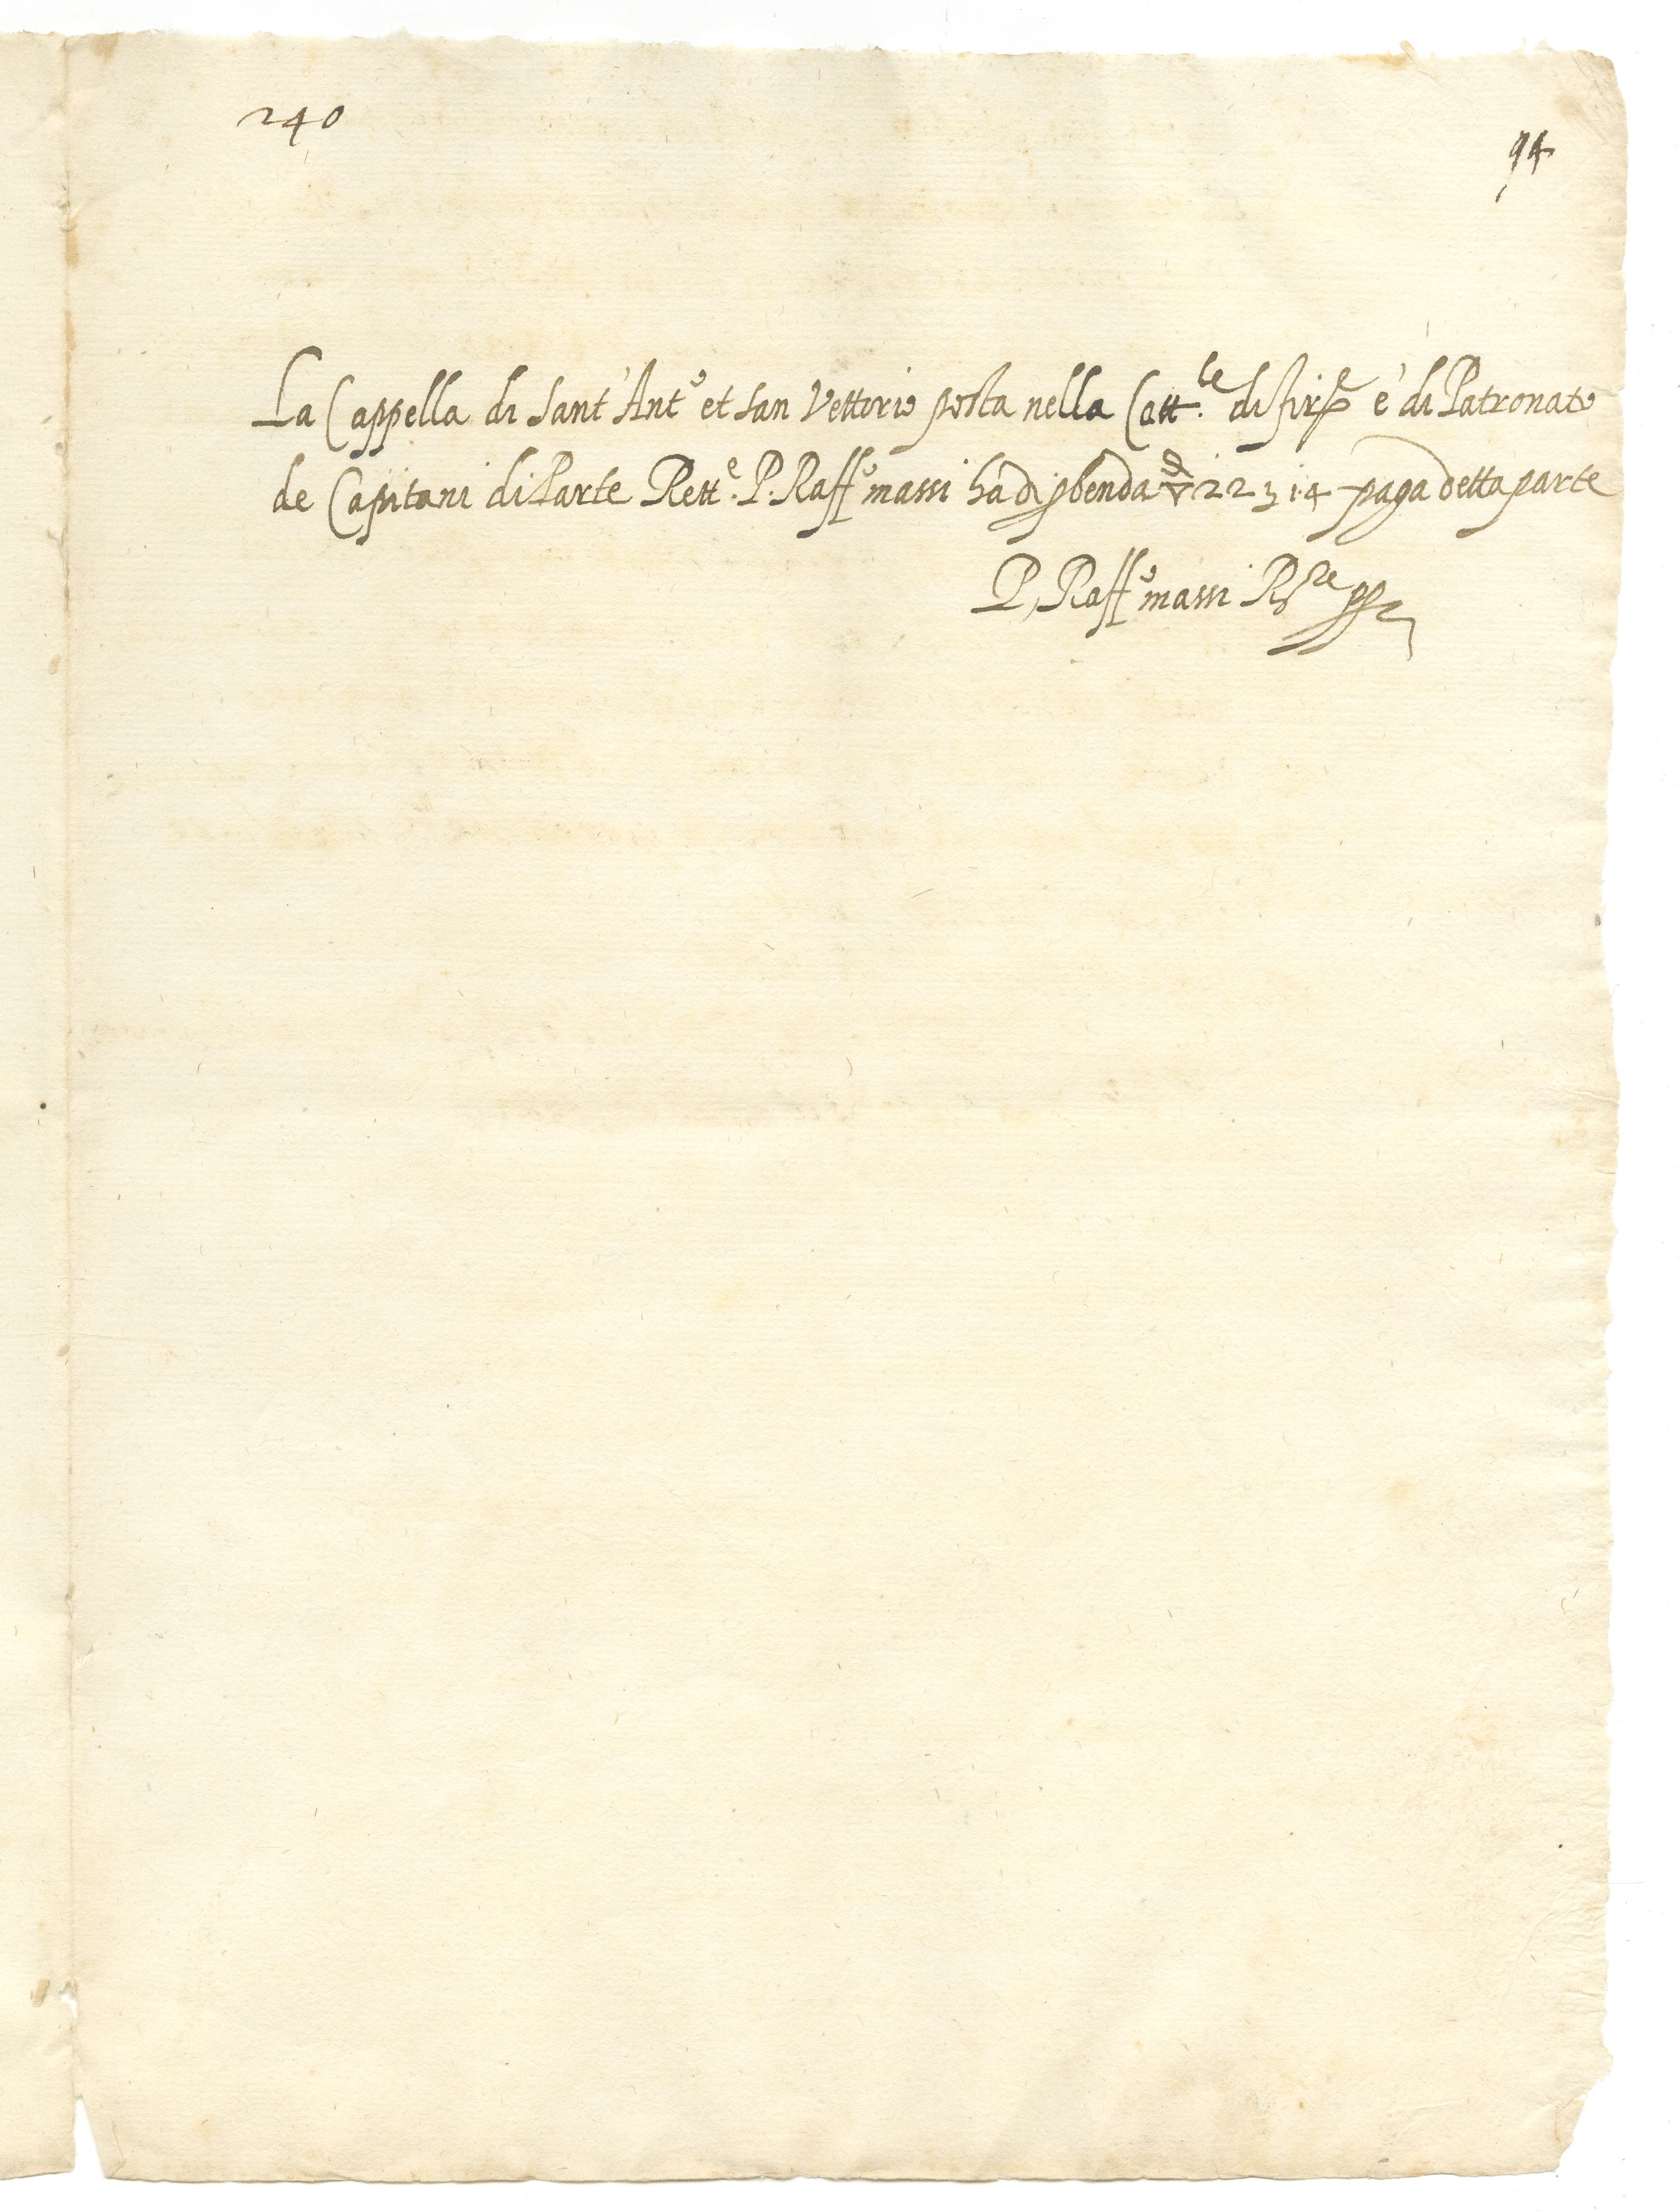 240
94
La Cappella di Sant'Antº et San Vettorio posta nella Catt.le di firẽ è di Patronato
de Capitani di Parte Rett.e P. Raffº massi ha di pbenda 22 3 14 paga detta parte
P. Raffº massi